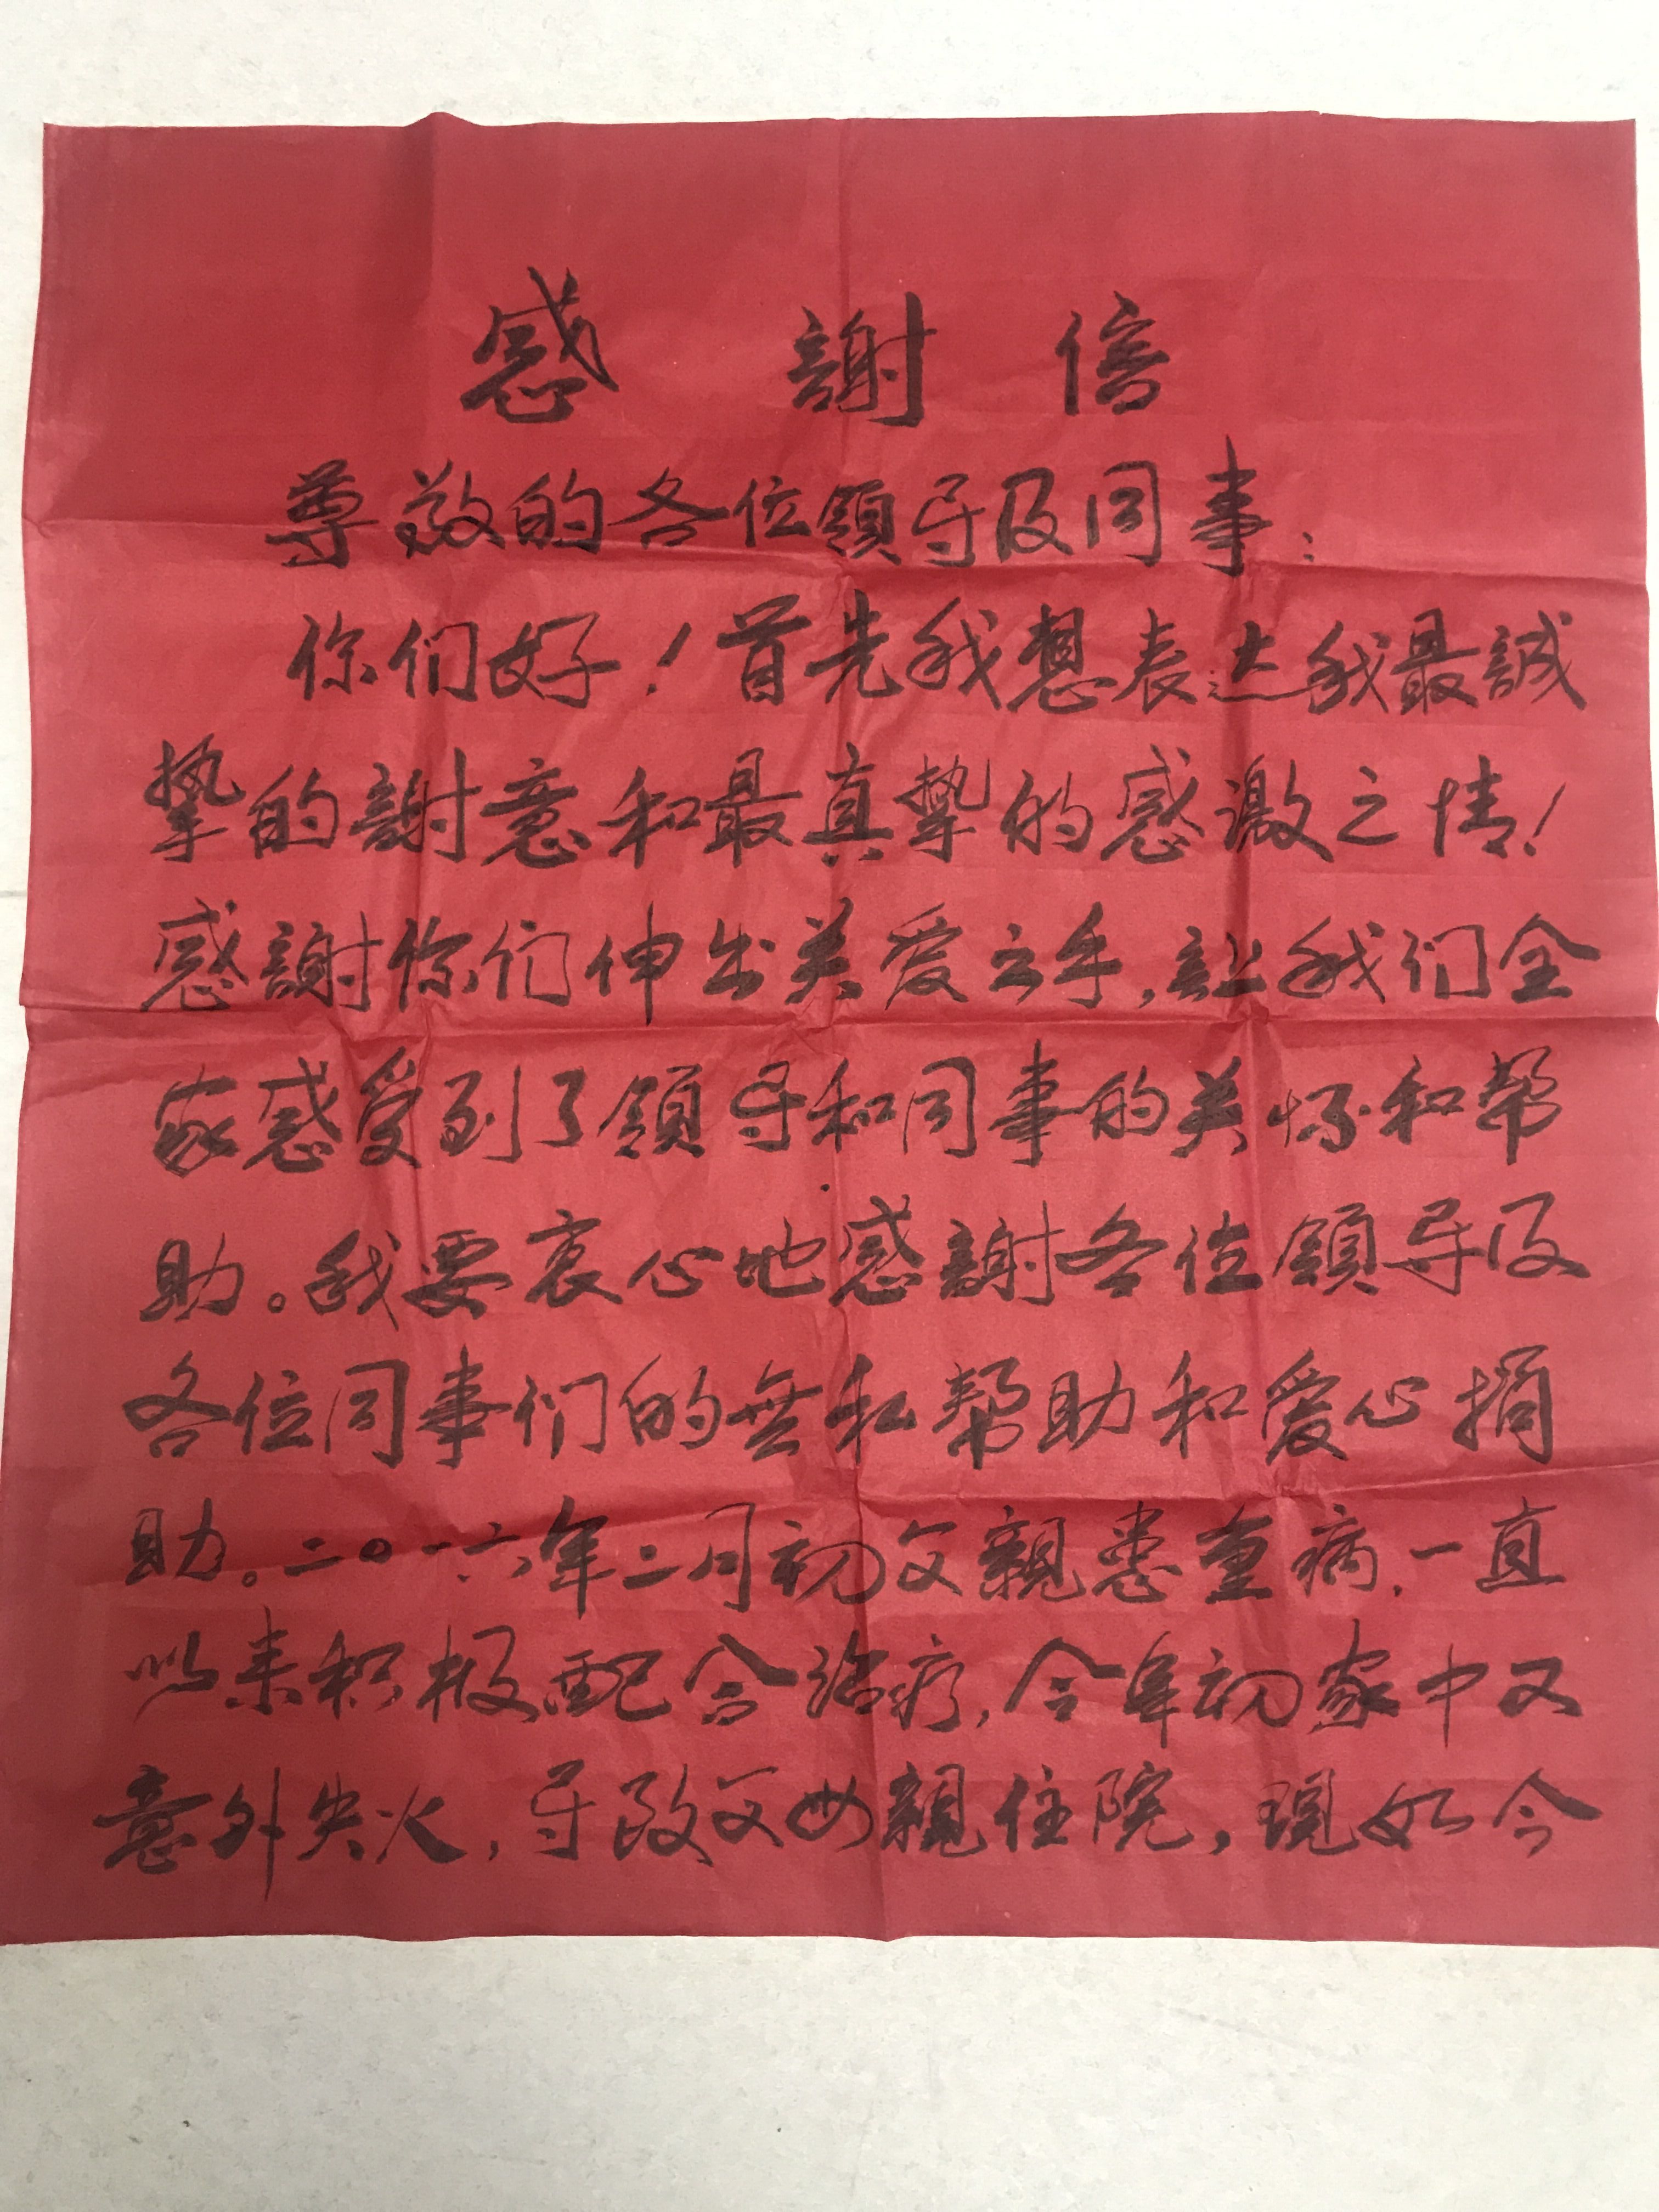 感謝信
尊敬的各位領导及同事：
你们好！首先我想表达我最誠
挚的謝意和最真挚的感激之情！
感謝你们伸出关爱之手，让我们全
家感受到了領导和同事的关怀和帮
助。我要衷心地感謝各位領导及
各位同事们的無私帮助和爱心捐
助。二〇一六年二月初父親患重病，一直
以来积极配合治疗，今年初家中又
意外失火，导致父母親住院，現如今